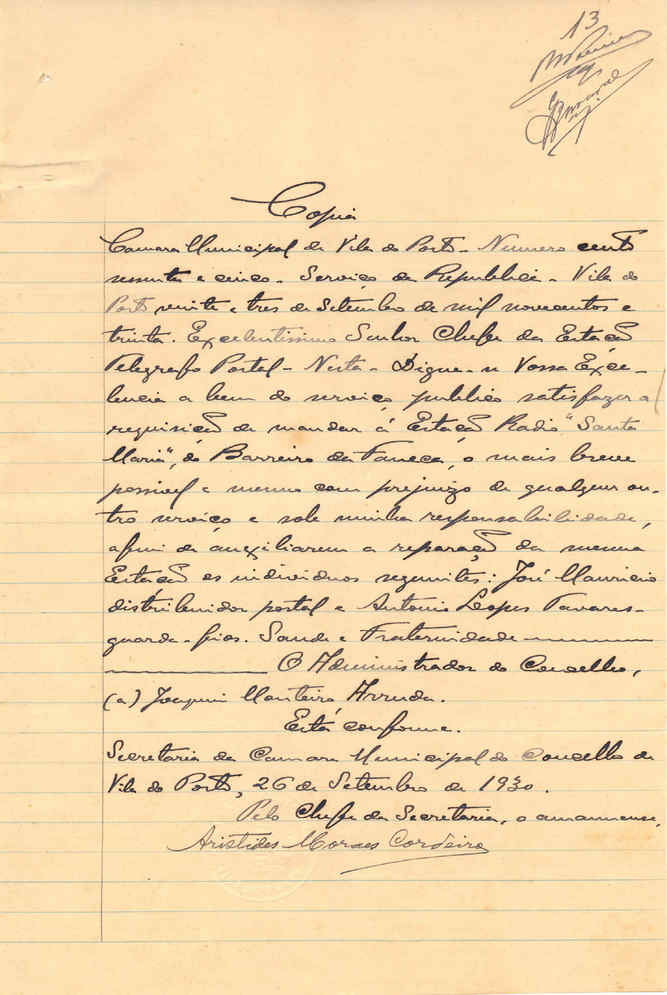 13
Copia
Camara Municipal da Vila do Porto - Numero cento
sessenta e cinco - Serviço da Republica - Vila do
Porto vinte e tres de Setembro de mil novecentos e
trinta. Excelentissimo Senhor Chefe da Estação
Telegrafo Postal - Nesta - Digne-se Vossa Exce-
lencia a bem do serviço publico satisfazer a
requisição de mandar á Estação Radio "Santa
Maria", do Barreiro da Faneca, o mais breve
possivel e mesmo com prejuizo de qualquer ou-
tro serviço e sob minha responsabilidade,
afim de auxiliarem a reparação da mesma
Estação os individuos seguintes: José Mauricio
distribuidor postal e Antonio Lopes Tavares -
guarda-fios. Saude e Fraternidade
O Administrador do Concelho,
(a) Joaquim Monteiro Arruda.
Está conforme.
Secretaria da Camara Municipal do Concelho da
Vila do Porto, 26 de Setembro de 1930.
Pelo Chefe da Secretaria, o amanuense,
Aristides Moraes Cordeiro